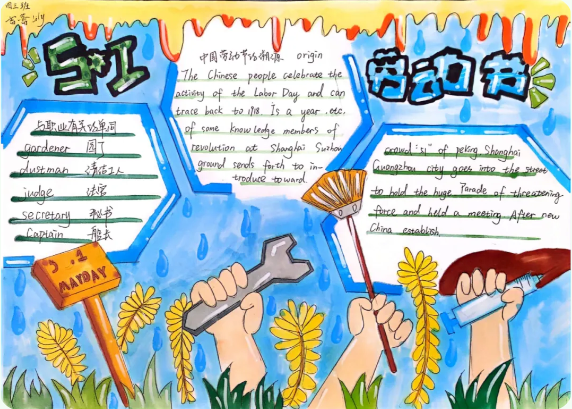 四三班
5·1
劳动节
中国劳动节的起源 origin
The Chinese people celebrate the
activity of the Labor Day and can
trace back to 1918. Is a year .etc.
of some knowledge members of
revolution at Shanghai Suzhou
ground sends forth to in-
troduce toward
与职业有关的单词
gardener 园丁
dustman 清洁工人
judge 法官
secretary 秘书
Captain 船长
crowd "51" of peking Shanghai
Guangzhou city goes into the street
to hold the huge Parade of threatening
force and held a meeting. After new
China establish
5.1
MAYDAY